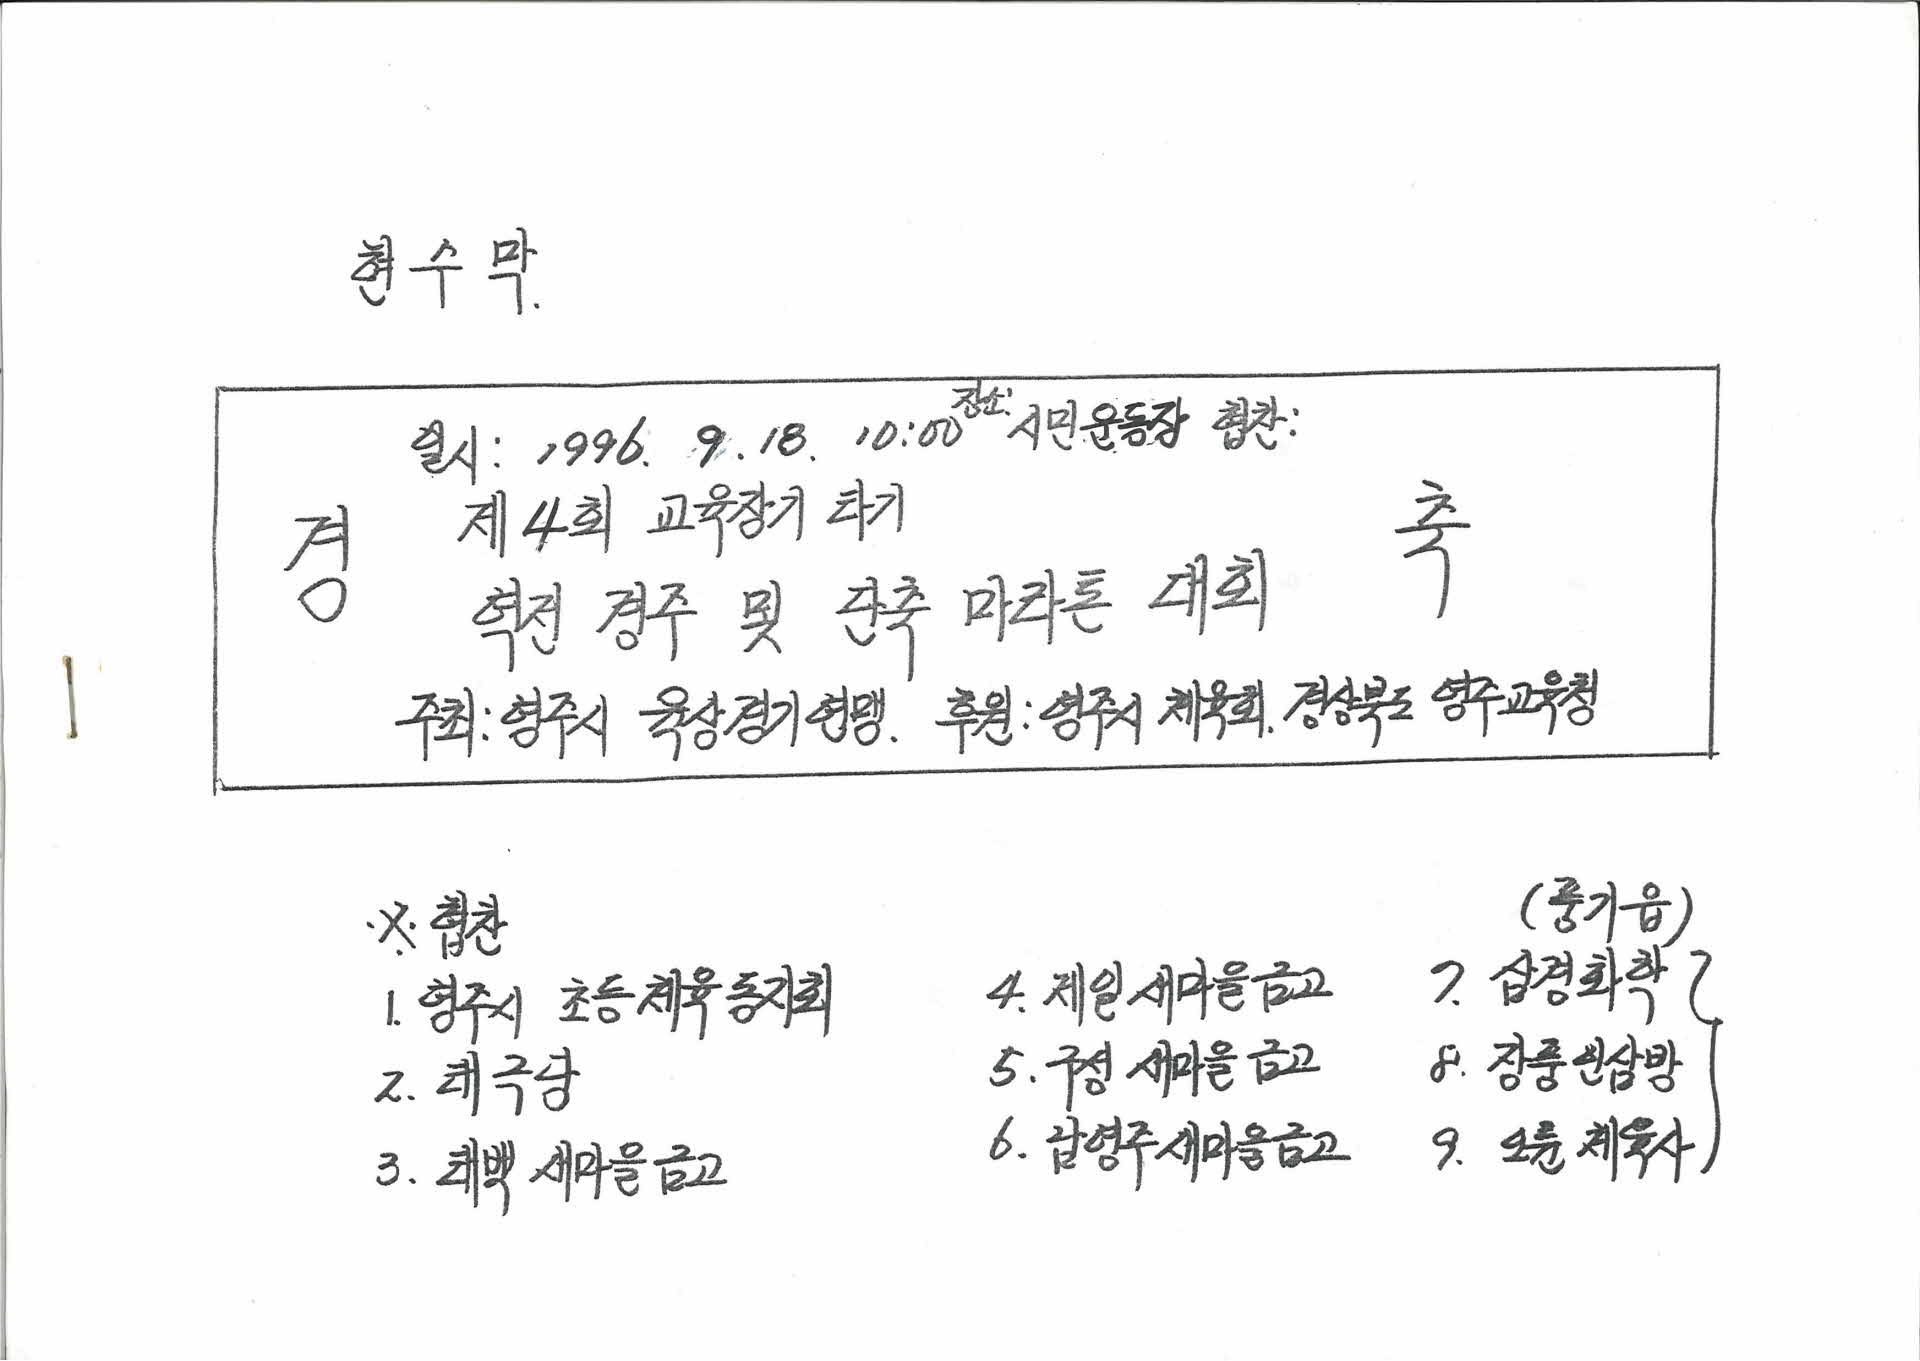 현수막.
일시: 1996. 9. 18. 10:00 장소: 시민운동장 협찬:
경 축
제4회 교육장기 타기
역전 경주 및 단축 마라톤 대회
주최: 영주시 육상경기연맹. 후원: 영주시 체육회. 경상북도 영주교육청
※ 협찬
1. 영주시 초등체육동지회
2. 태극당
3. 태백 새마을금고
4. 제일새마을금고
5. 구성 새마을금고
6. 남영주새마을금고
(풍기읍)
7. 삼경화학
8. 장풍인삼방
9. 오륜체육사